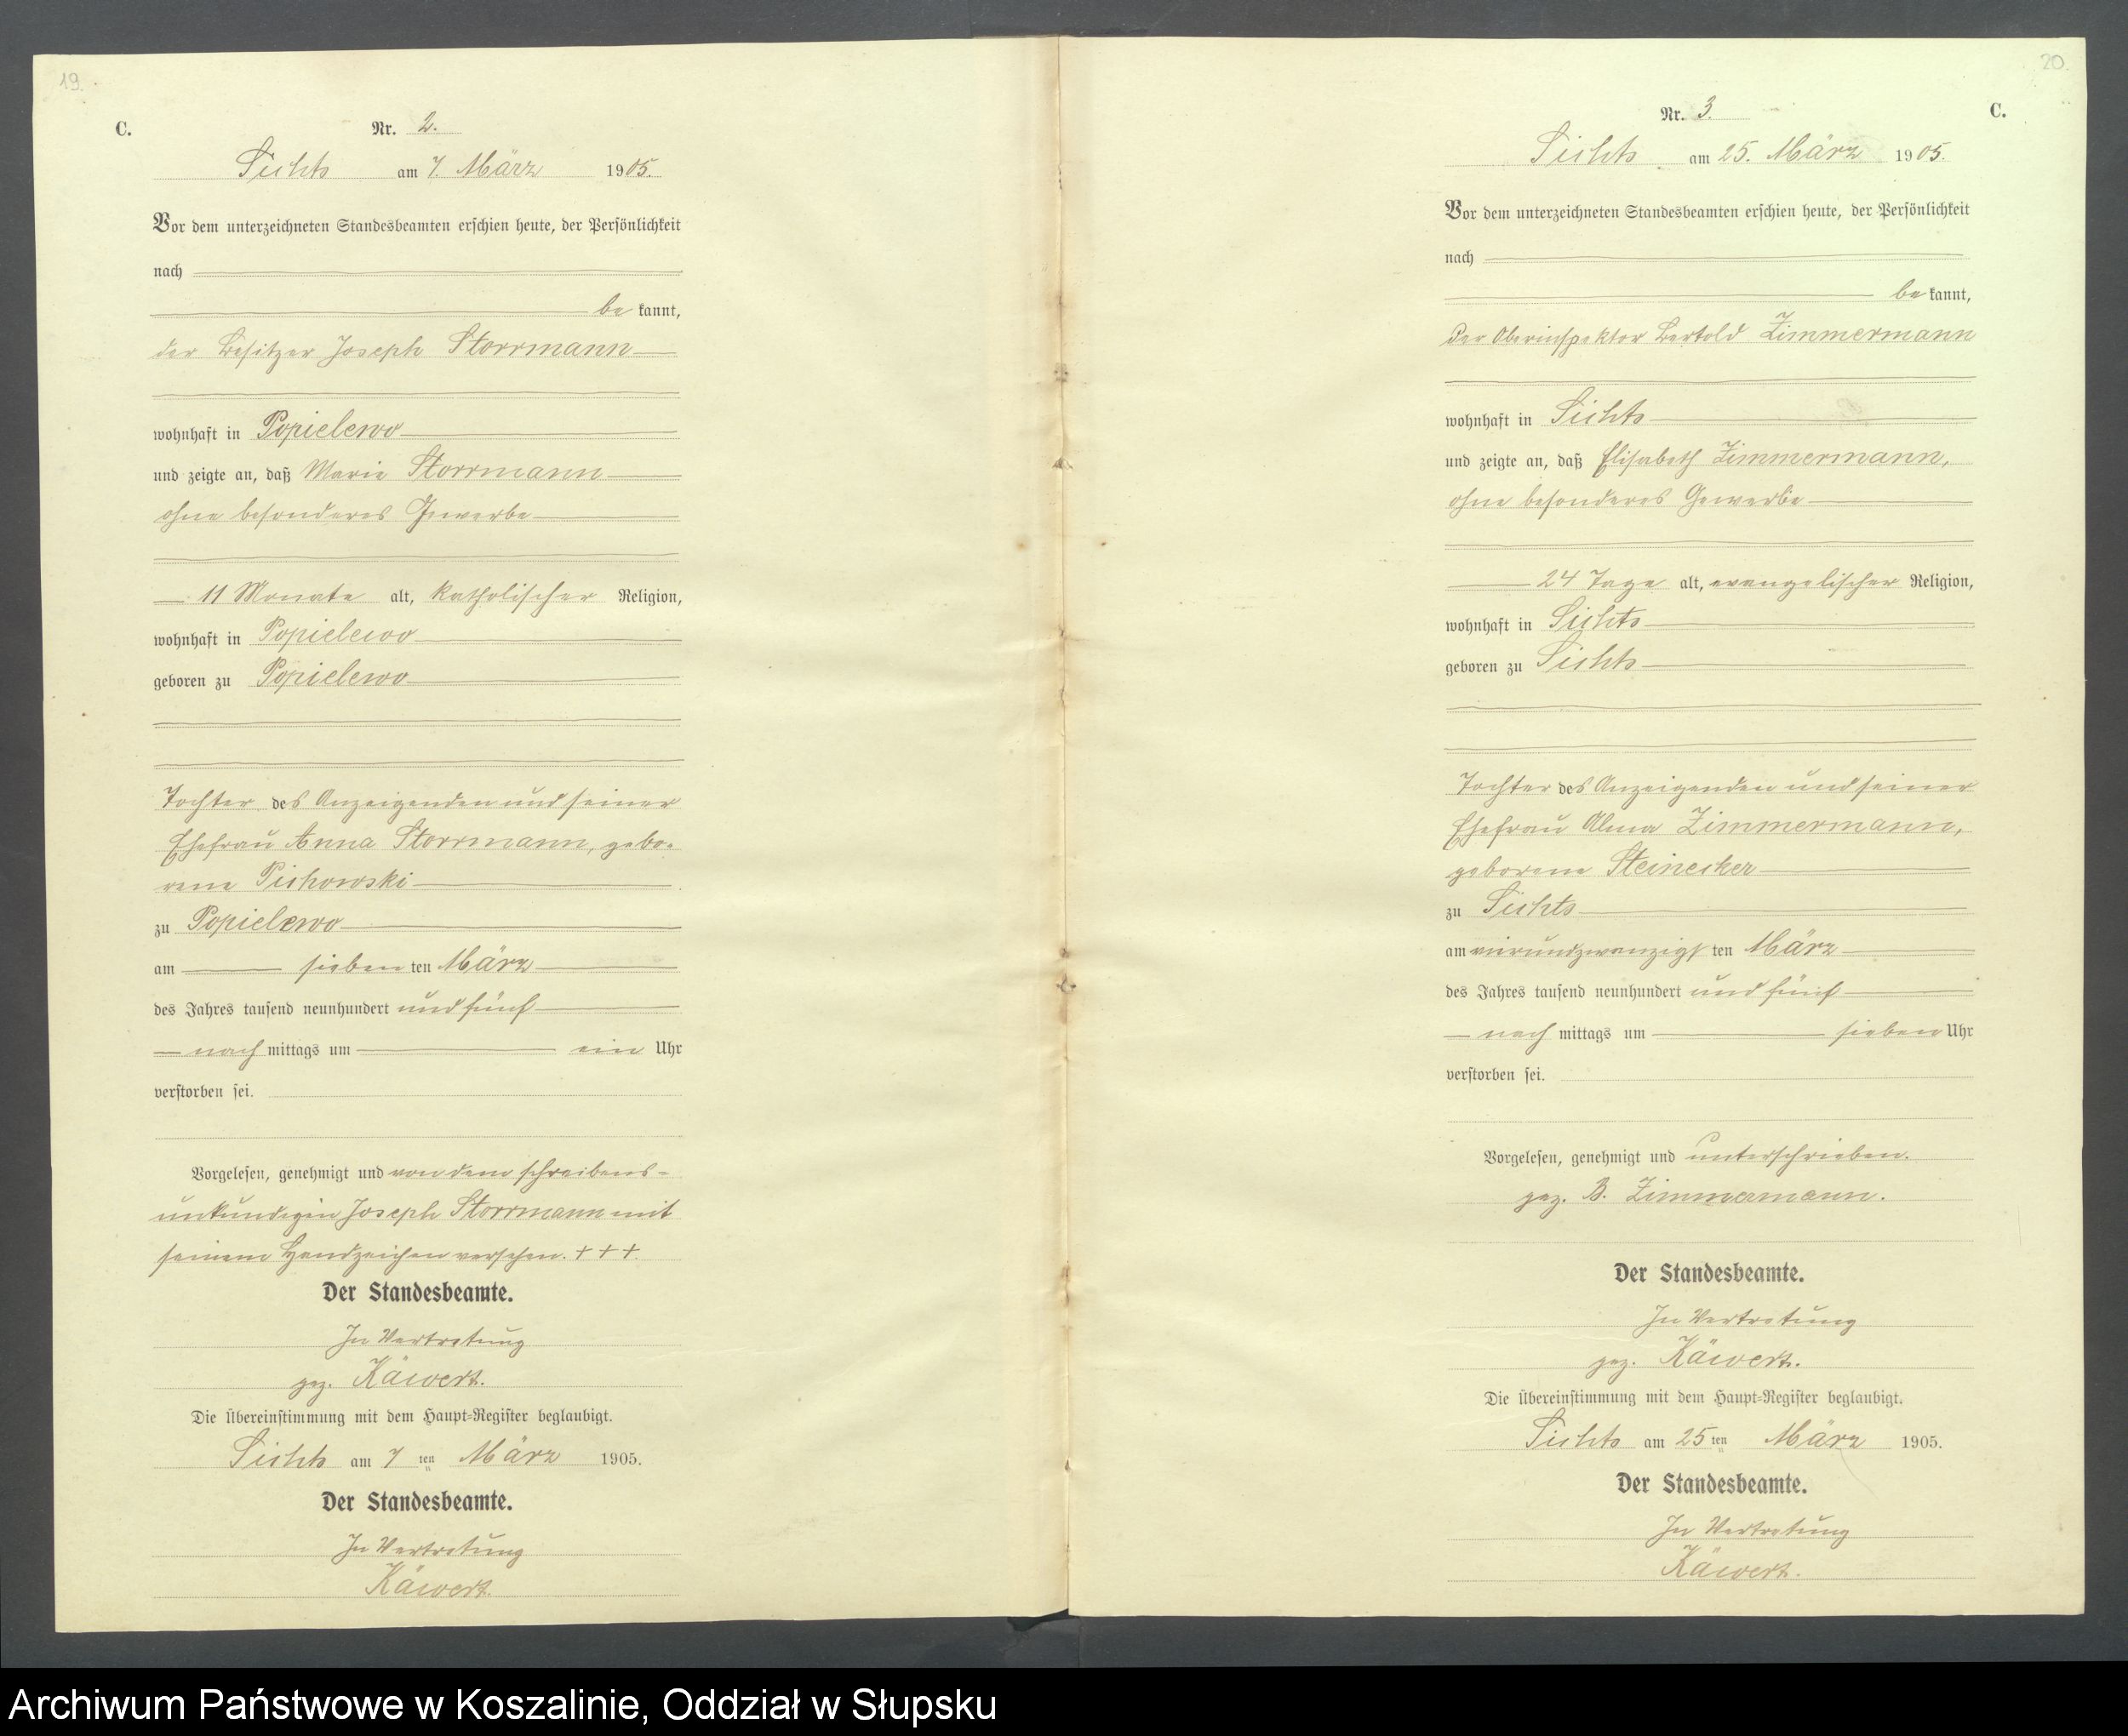 19.
C.
Nr. 2.
Sichts am 7. März 1905.
Vor dem unterzeichneten Standesbeamten erschien heute, der Persönlichkeit
nach
be kannt,
der Besitzer Joseph Storrmann
wohnhaft in Popielewo
und zeigte an, daß Marie Storrmann
ohne besonderes Gewerbe
11 Monate alt, katholischer Religion,
wohnhaft in Popielewo
geboren zu Popielewo
Tochter des Anzeigenden und seiner
Ehefrau Anna Storrmann, gebo-
rene Pichowski
zu Popielewo
am sieben ten März
des Jahres tausend neunhundert und fünf
nach mittags um ein Uhr
verstorben sei.
Vorgelesen, genehmigt und von dem schreibens-
unkundigen Joseph Storrmann mit
seinem Handzeichen versehen. + + +.
Der Standesbeamte.
In Vertretung
gez. Käwert.
Die Übereinstimmung mit dem Haupt-Register beglaubigt.
Sichts am 7 ten März 1905.
Der Standesbeamte.
In Vertretung
Käwert.
20.
Nr. 3.
C.
Sichts am 25. März 1905.
Vor dem unterzeichneten Standesbeamten erschien heute, der Persönlichkeit
nach
be kannt,
der Oberinspektor Bertold Zimmermann
wohnhaft in Sichts
und zeigte an, daß Elisabeth Zimmermann,
ohne besonderes Gewerbe
24 Tage alt, evangelischer Religion,
wohnhaft in Sichts
geboren zu Sichts
Tochter des Anzeigenden und seiner
Ehefrau Alma Zimmermann,
geborene Steinecker
zu Sichts
am vierundzwanzigs ten März
des Jahres tausend neunhundert und fünf
nach mittags um sieben Uhr
verstorben sei.
Vorgelesen, genehmigt und unterschrieben.
gez. B. Zimmermann.
Der Standesbeamte.
In Vertretung
gez. Käwert.
Die Übereinstimmung mit dem Haupt-Register beglaubigt.
Sichts am 25 ten März 1905.
Der Standesbeamte.
In Vertretung
Käwert.
Archiwum Państwowe w Koszalinie, Oddział w Słupsku